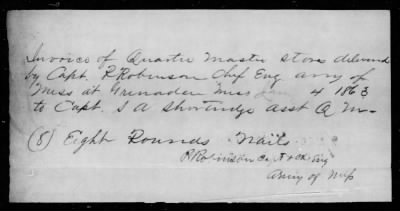 Invoice of Quarter Master Stores delivered
by Capt. R Robinson Chf Eng army of
Miss at Grenada Miss Jany 4 1863
to Capt. S A Shortridge asst Q M-
(8) Eight Pounds Nails
R Robinson Capt & Ch Eng
Army of Miss